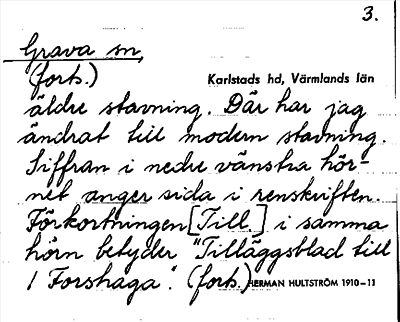 3.
Grava sn,
(forts.)
Karlstads hd, Värmlands län
äldre stavning. Där har jag
ändrat till modern stavning.
Siffran i nedre vänstra hör-
net anger sida i renskriften.
Förkortningen [Till.] i samma
hörn betyder "Tilläggsblad till
1 Forshaga". (forts.)
HERMAN HULTSTRÖM 1910-11